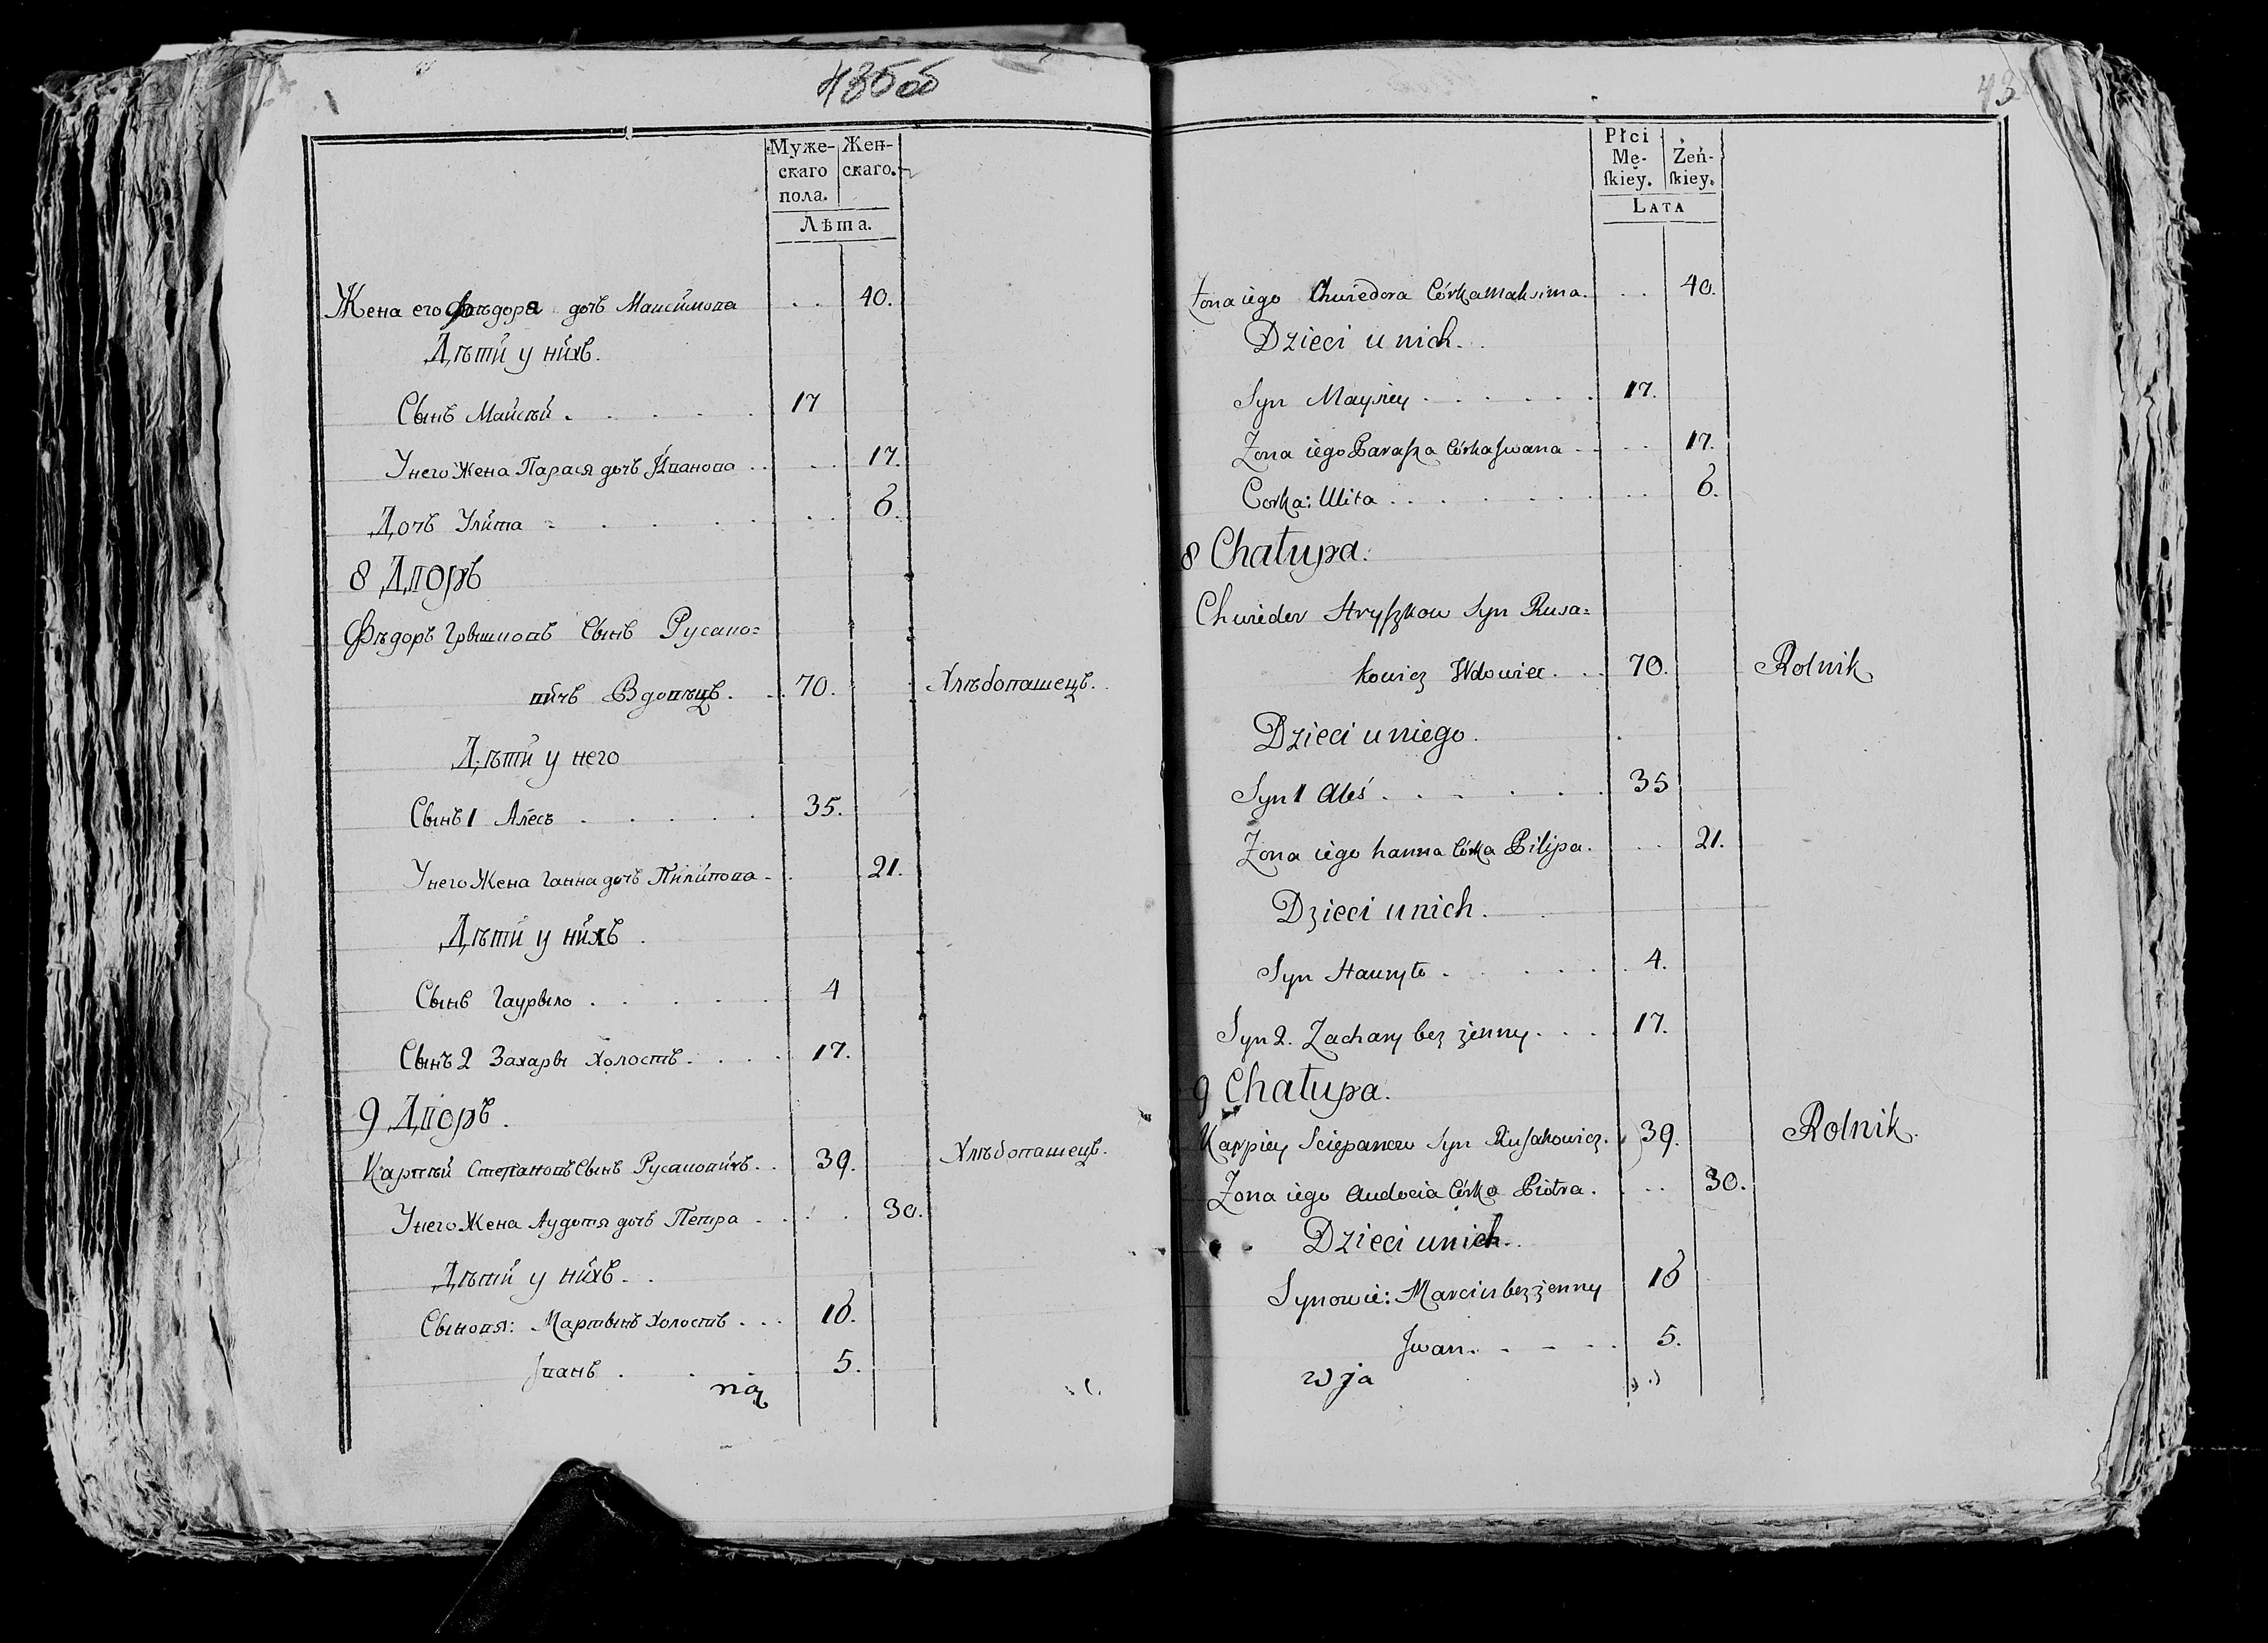 43об
Муже- Жен-
скаго скаго.
пола.
Лѣта.
Жена его Фѣдора дочь Максимова 40.
Дѣти у нихъ.
Сынъ Майсѣй 17
У него Жена Парася дочь Иванова 17.
Дочь Улита 6.
8 Дворъ
Фѣдоръ Грышковъ Сынъ Русако=
вичъ Вдовецъ. 70. Хлѣбопашецъ.
Дѣти у него
Сынъ 1 Алесь 35.
У него Жена Ганна дочь Пилипова 21.
Дѣти у нихъ.
Сынъ Гаурыло 4
Сынъ 2 Захары холостъ 17.
9 Дворъ.
Карпѣй Степановъ Сынъ Русаковичъ. 39. Хлѣбопашецъ.
У него Жена Аудотя дочь Петра 30.
Дѣти у нихъ.
Сыновя: Мартынъ Холостъ 16.
Іванъ 5.
43
Płci
Mę- Żeń-
ſkiey. ſkiey.
LATA
Zona iego Chwiedora Córka Maksima. 40.
Dzieci u nich.
Syn Maysiey 17.
Zona iego Paraſka Córka Jwana 17.
Corka: Ulita 6.
8 Chałupa.
Chwieder Hryſzkow Syn Rusa=
kowicz Wdowiec. 70. Rolnik
Dzieci u niego.
Syn 1 Aleś 35
Zona iego hanna Córka Pilipa. 21.
Dzieci u nich.
Syn Hauryło 4.
Syn 2. Zachary bez żenny 17.
9 Chałupa.
Karpiey Sciepanow Syn Ruſakowicz. 39. Rolnik.
Zona iego Audocia Córka Piotra. 30.
Dzieci u nich.
Synowie: Marcin bez żenny 16
Jwan. 5.